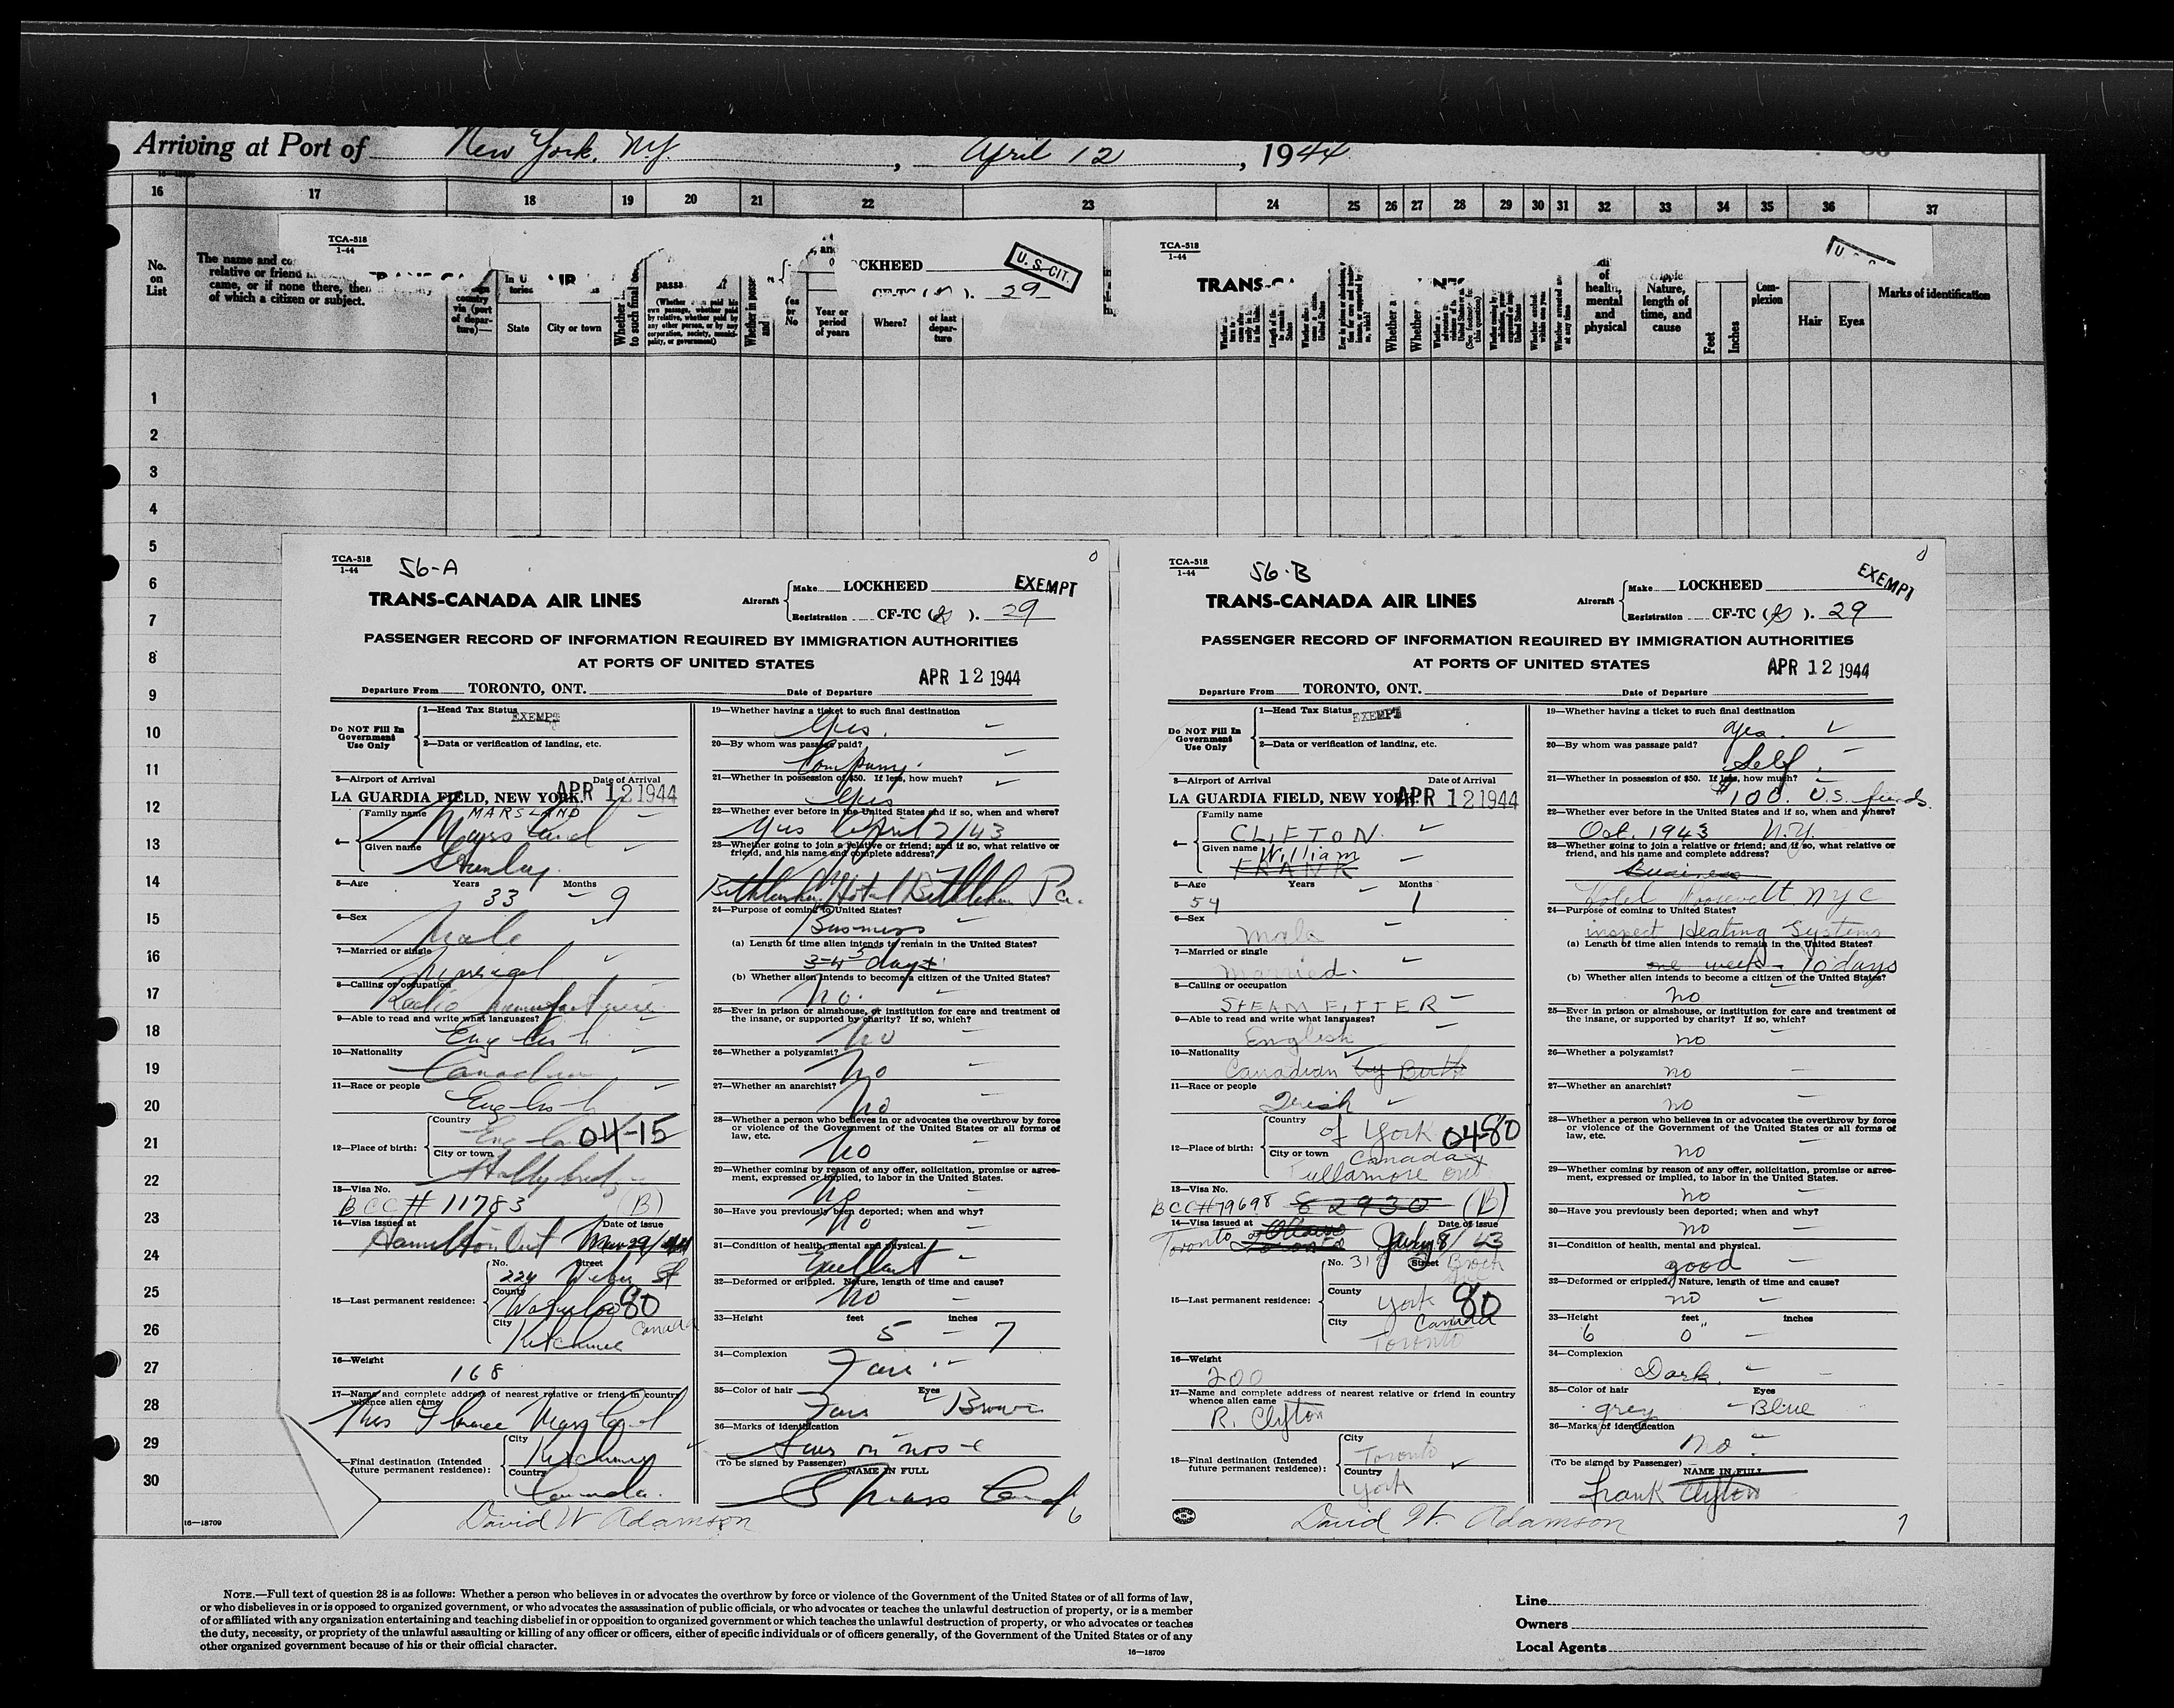 Arriving at Port of New York, N.Y. , April 12 , 1944
16 17 18 19 20 21 22 23 24 25 26 27 28 29 30 31 32 33 34 35 36 37
No. on List
The name and
relative or friend
came, or if none there, then
of which a citizen or subject.
country via (port of departure)—
State
City or town
Whether
to such final
(Whether paid his own passage, whether paid by relative, whether paid by any other person, or by any corporation, society, municipality, or government)
Year or period of years
Where?
of last departure
of health, mental and physical
Nature, length of time, and cause
Feet
Inches
Complexion
Hair
Eyes
Marks of identification
TCA-518
1-44
CKHEED
29
U. S. CIT.
TCA-518
1-44
TRANS-C
1
2
3
4
5
6
7
8
9
10
11
12
13
14
15
16
17
18
19
20
21
22
23
24
25
26
27
28
29
30
16—18709
TCA-518
1-44
56-A
0
TRANS-CANADA AIR LINES
Aircraft
Make LOCKHEED
EXEMPT
Registration CF-TC ( ). 29
PASSENGER RECORD OF INFORMATION REQUIRED BY IMMIGRATION AUTHORITIES
AT PORTS OF UNITED STATES
APR 12 1944
Departure From TORONTO, ONT. Date of Departure
Do NOT Fill In Government Use Only
1—Head Tax Status EXEMPT
2—Data or verification of landing, etc.
3—Airport of Arrival Date of Arrival
LA GUARDIA FIELD, NEW YORK. APR 12 1944
4— Family name MARSLAND
Marsland
Given name Stanley
5—Age Years 33 Months 9
6—Sex Male
7—Married or single Married
8—Calling or occupation Radio
9—Able to read and write what languages? English
10—Nationality Canadian
11—Race or people English
12—Place of birth: Country 04-15
City or town Stalybridge
13—Visa No. BCC# 11783 (B)
14—Visa issued at Hamilton Ont Date of issue Mar 29/44
15—Last permanent residence: No. 224 Street Weber St
County Waterloo 80
City Kitchener Canada
16—Weight 168
17—Name and complete address of nearest relative or friend in country whence alien came
Mrs Florence Marsland
18—Final destination (Intended future permanent residence): City Kitchener
Country Canada.
David W Adamson
19—Whether having a ticket to such final destination
Yes.
20—By whom was passage paid?
Company.
21—Whether in possession of $50. If less, how much?
Yes
22—Whether ever before in the United States and if so, when and where?
Yes April 2/43
23—Whether going to join a relative or friend; and if so, what relative or friend, and his name and complete address?
Bethlehem Hotel Bethlehem Pa.
24—Purpose of coming to United States?
Business
(a) Length of time alien intends to remain in the United States?
3-4 5 days
(b) Whether alien intends to become a citizen of the United States?
No.
25—Ever in prison or almshouse, or institution for care and treatment of the insane, or supported by charity? If so, which?
No
26—Whether a polygamist?
No
27—Whether an anarchist?
No
28—Whether a person who believes in or advocates the overthrow by force or violence of the Government of the United States or all forms of law, etc.
No
29—Whether coming by reason of any offer, solicitation, promise or agreement, expressed or implied, to labor in the United States.
No
30—Have you previously been deported; when and why?
No
31—Condition of health, mental and physical.
Excellent
32—Deformed or crippled. Nature, length of time and cause?
No
33—Height feet 5 - inches 7
34—Complexion Fair
35—Color of hair Fair Eyes Brown
36—Marks of identification
Scar on nose
(To be signed by Passenger) NAME IN FULL
S Marsland
6
TCA-518
1-44
56-B
0
TRANS-CANADA AIR LINES
Aircraft
Make LOCKHEED
EXEMPT
Registration CF-TC ( ). 29
PASSENGER RECORD OF INFORMATION REQUIRED BY IMMIGRATION AUTHORITIES
AT PORTS OF UNITED STATES
APR 12 1944
Departure From TORONTO, ONT. Date of Departure
Do NOT Fill In Government Use Only
1—Head Tax Status EXEMPT
2—Data or verification of landing, etc.
3—Airport of Arrival Date of Arrival
LA GUARDIA FIELD, NEW YORK. APR 12 1944
4— Family name CLIFTON
Given name William
FRANK
5—Age 54 Years Months 1
6—Sex Male
7—Married or single Married.
8—Calling or occupation STEAM FITTER
9—Able to read and write what languages? English
10—Nationality Canadian by Birth
11—Race or people Irish
12—Place of birth: Country of York 04-80
City or town Canada
Tullamore Ont
13—Visa No. BCC#79698 82930 (B)
14—Visa issued at Toronto Ottawa Toronto Date of issue July 8/43
15—Last permanent residence: No. 31 Street
County York 80
City Canada
Toronto
16—Weight 200
17—Name and complete address of nearest relative or friend in country whence alien came
R. Clifton
18—Final destination (Intended future permanent residence): City Toronto
Country York
David W. Adamson
19—Whether having a ticket to such final destination
yes.
20—By whom was passage paid?
Self
21—Whether in possession of $50. If less, how much?
$100. U.S. funds.
22—Whether ever before in the United States and if so, when and where?
Oct. 1943 N.Y.
23—Whether going to join a relative or friend; and if so, what relative or friend, and his name and complete address?
Business
Hotel Roosevelt NYC
24—Purpose of coming to United States?
inspect Heating Systems
(a) Length of time alien intends to remain in the United States?
one week - 10 days
(b) Whether alien intends to become a citizen of the United States?
no
25—Ever in prison or almshouse, or institution for care and treatment of the insane, or supported by charity? If so, which?
no
26—Whether a polygamist?
no
27—Whether an anarchist?
no
28—Whether a person who believes in or advocates the overthrow by force or violence of the Government of the United States or all forms of law, etc.
no
29—Whether coming by reason of any offer, solicitation, promise or agreement, expressed or implied, to labor in the United States.
no
30—Have you previously been deported; when and why?
no
31—Condition of health, mental and physical.
good
32—Deformed or crippled. Nature, length of time and cause?
no
33—Height 6 feet 0" inches
34—Complexion Dark.
35—Color of hair grey Eyes Blue
36—Marks of identification
no.
(To be signed by Passenger) NAME IN FULL
Frank Clifton
7
NOTE.—Full text of question 28 is as follows: Whether a person who believes in or advocates the overthrow by force or violence of the Government of the United States or of all forms of law,
or who disbelieves in or is opposed to organized government, or who advocates the assassination of public officials, or who advocates or teaches the unlawful destruction of property, or is a member
of or affiliated with any organization entertaining and teaching disbelief in or opposition to organized government or which teaches the unlawful destruction of property, or who advocates or teaches
the duty, necessity, or propriety of the unlawful assaulting or killing of any officer or officers, either of specific individuals or of officers generally, of the Government of the United States or of any
other organized government because of his or their official character.
16—18709
Line
Owners
Local Agents